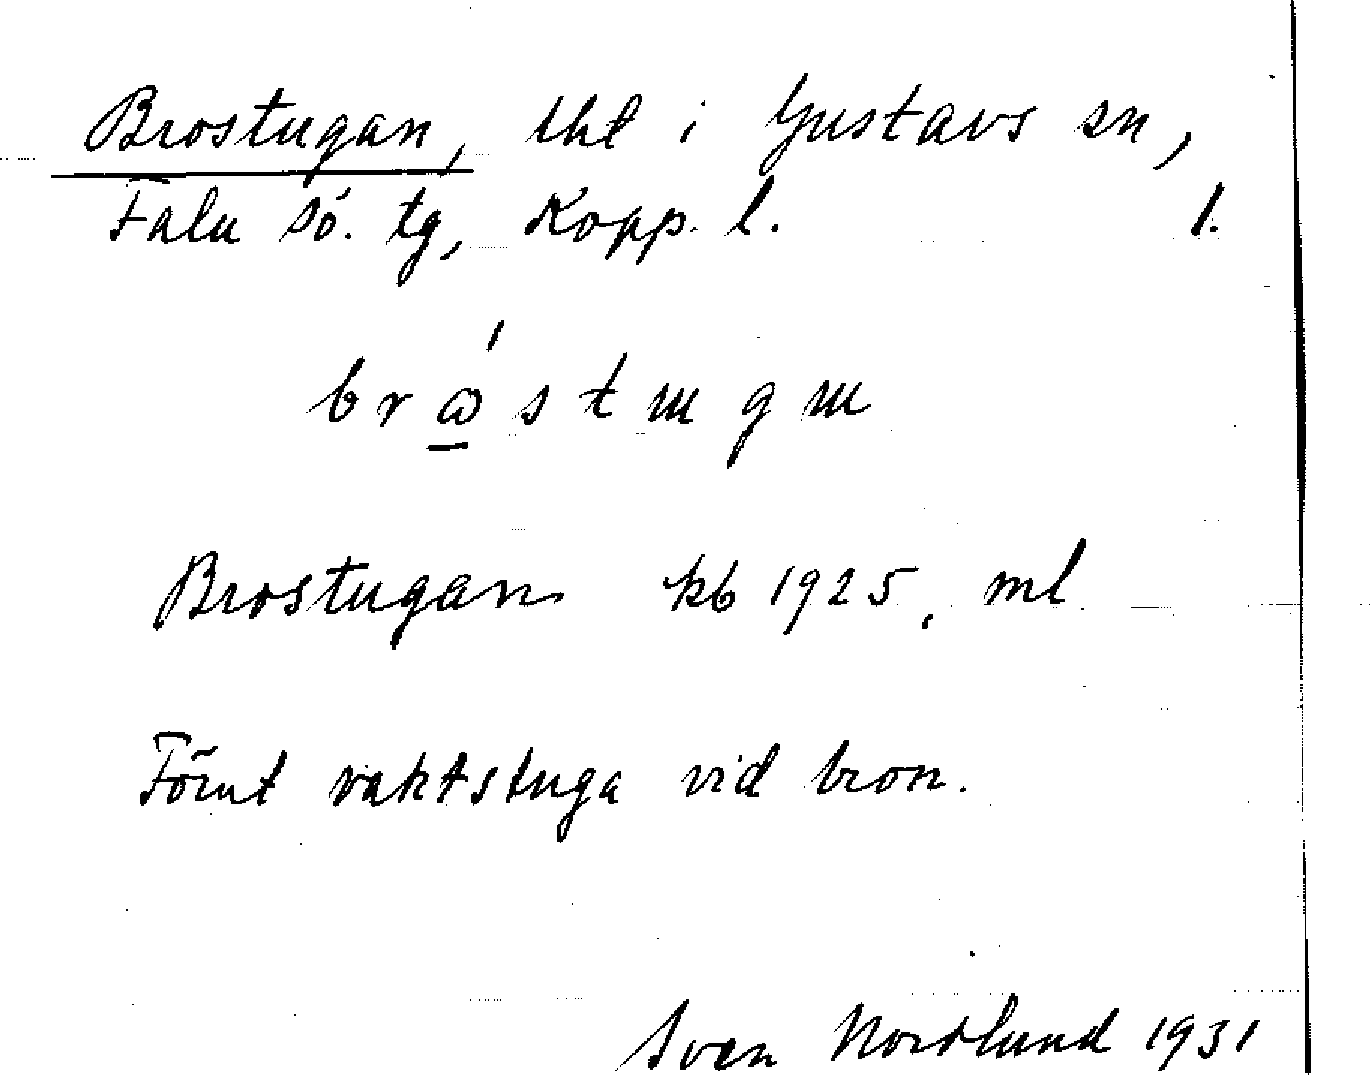 Brostugan, tht i Gustavs sn,
Falu sö. tg, Kopp. l. 1.
Brostugan kb 1925, ml
Förut vaktstuga vid bron.
Sven Nordlund 1931